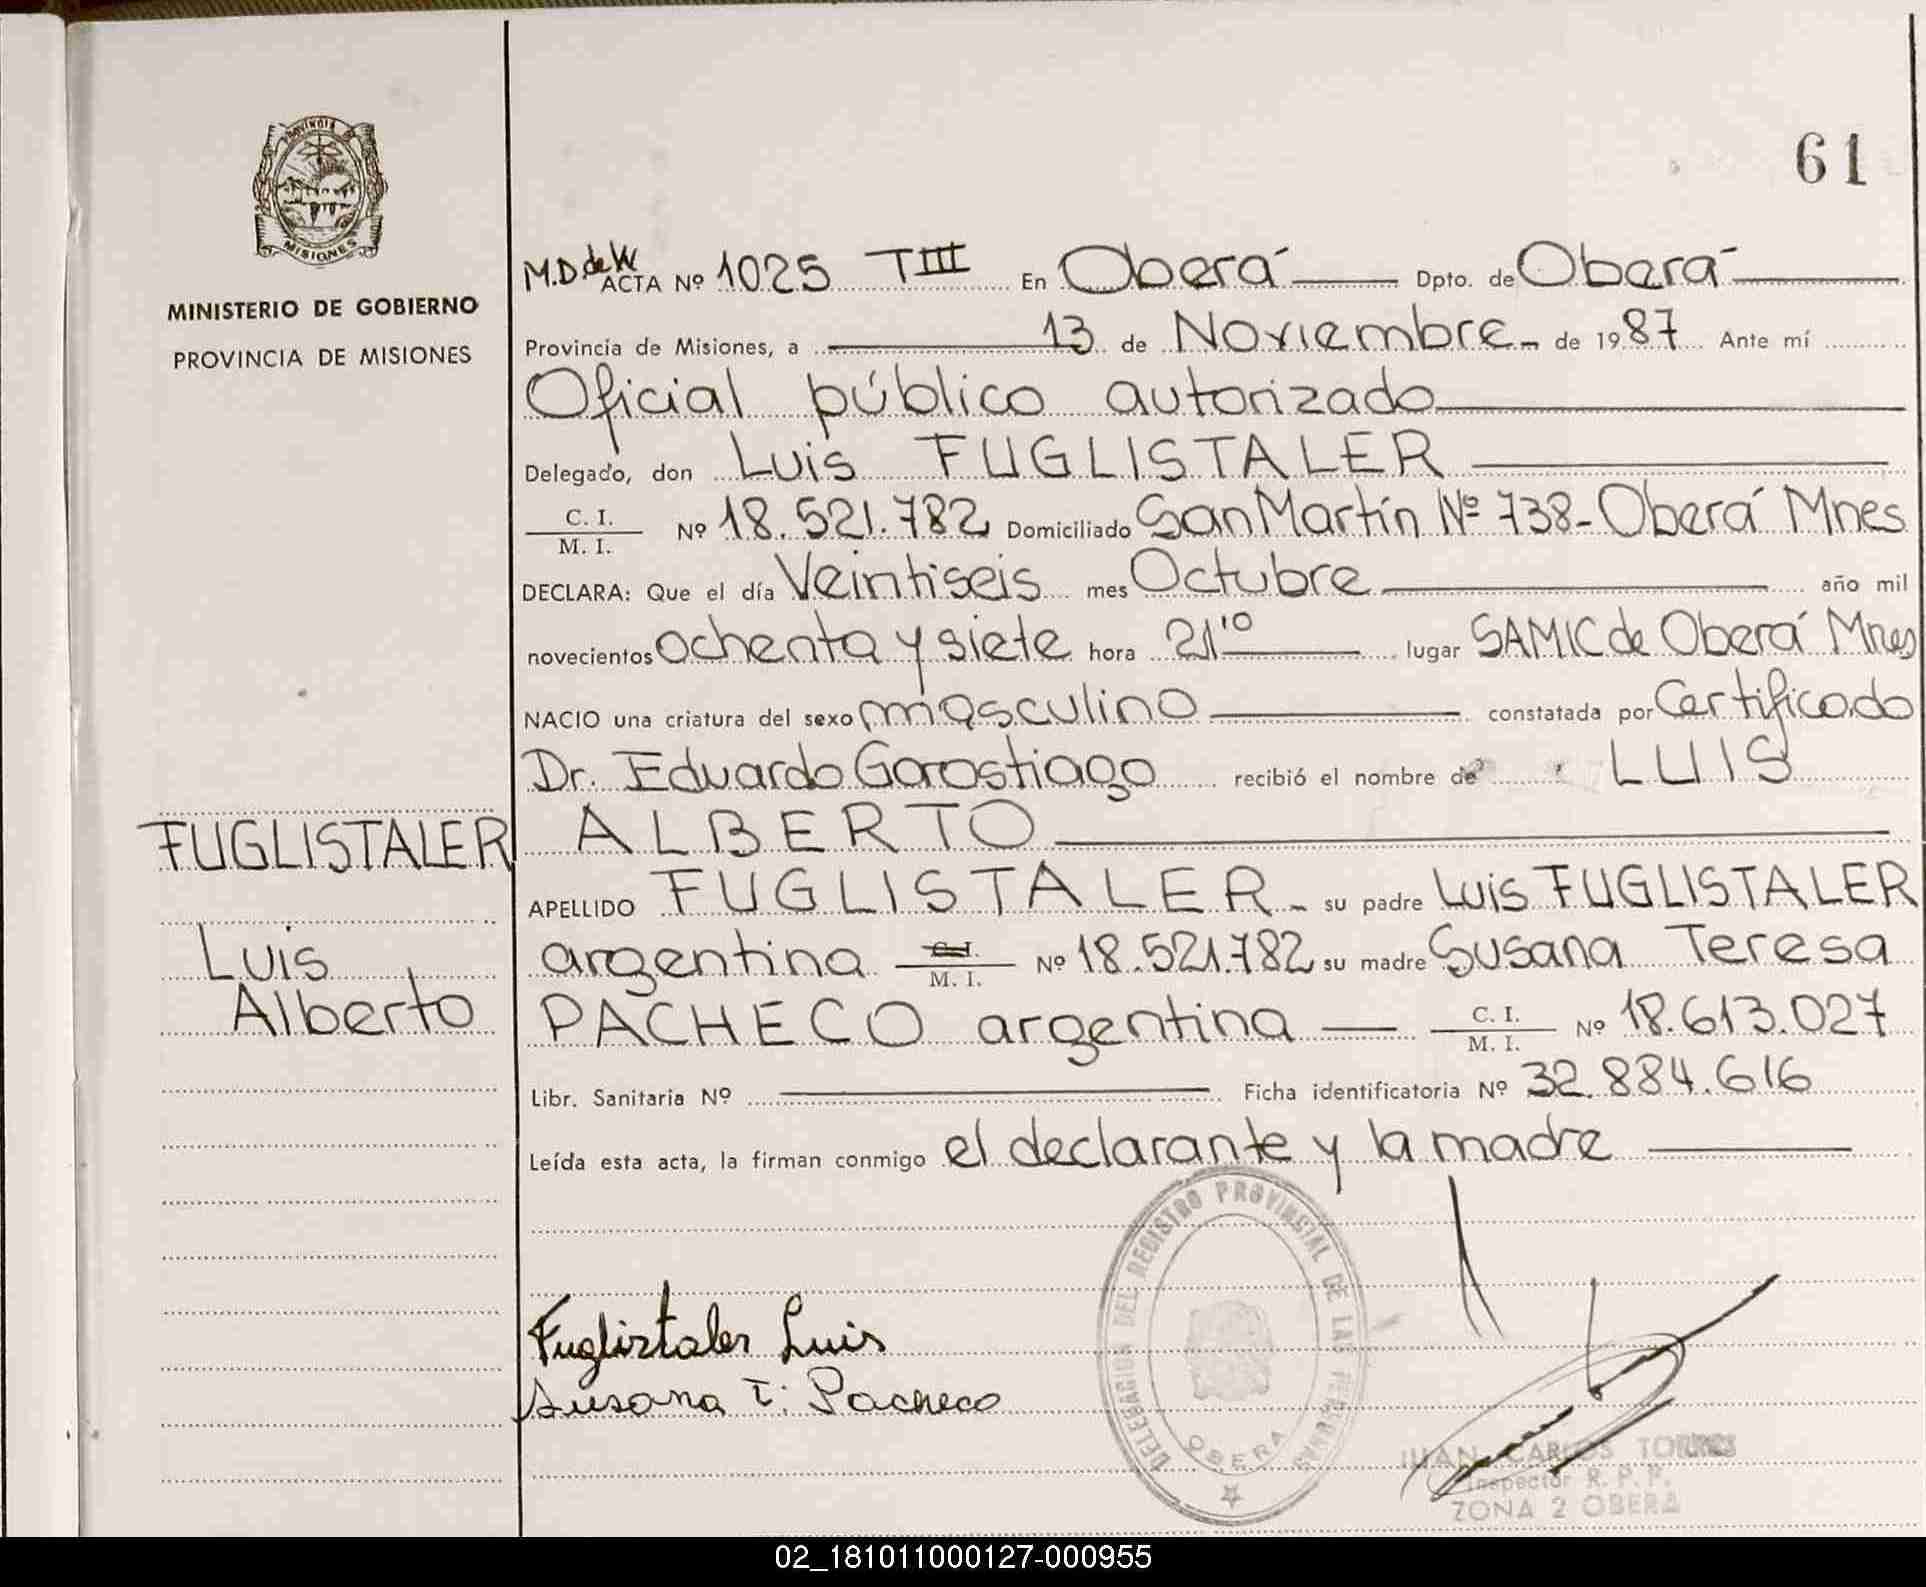 Provincia
MISIONES
MINISTERIO DE GOBIERNO
PROVINCIA DE MISIONES
FUGLISTALER
Luis
Alberto
61
M.D. de W ACTA Nº 1025 TIII En Oberá Dpto. de Oberá
Provincia de Misiones, a 13 de Noviembre de 1987 Ante mí
Oficial público autorizado
Delegado, don Luis FUGLISTALER
C. I. / M. I. Nº 18.521.782 Domiciliado San Martín Nº 738-Oberá Mnes
DECLARA: Que el día Veintiseis mes Octubre año mil
novecientos ochenta y siete hora 21'10 lugar SAMIC de Oberá Mnes
NACIO una criatura del sexo masculino constatada por Certificado
Dr. Eduardo Gorostiago recibió el nombre de LUIS
ALBERTO
APELLIDO FUGLISTALER su padre Luis FUGLISTALER
argentina C. I. / M. I. Nº 18.521.782 su madre Susana Teresa
PACHECO argentina C. I. / M. I. Nº 18.613.027
Libr. Sanitaria Nº Ficha identificatoria Nº 32.884.616
Leída esta acta, la firman conmigo el declarante y la madre
DELEGACION DEL REGISTRO PROVINCIAL DE LAS PERSONAS
OBERA
Fuglistaler Luis
Susana T. Pacheco
JUAN CARLOS TORRES
Inspector R. P. P.
ZONA 2 OBERA
02_181011000127-000955